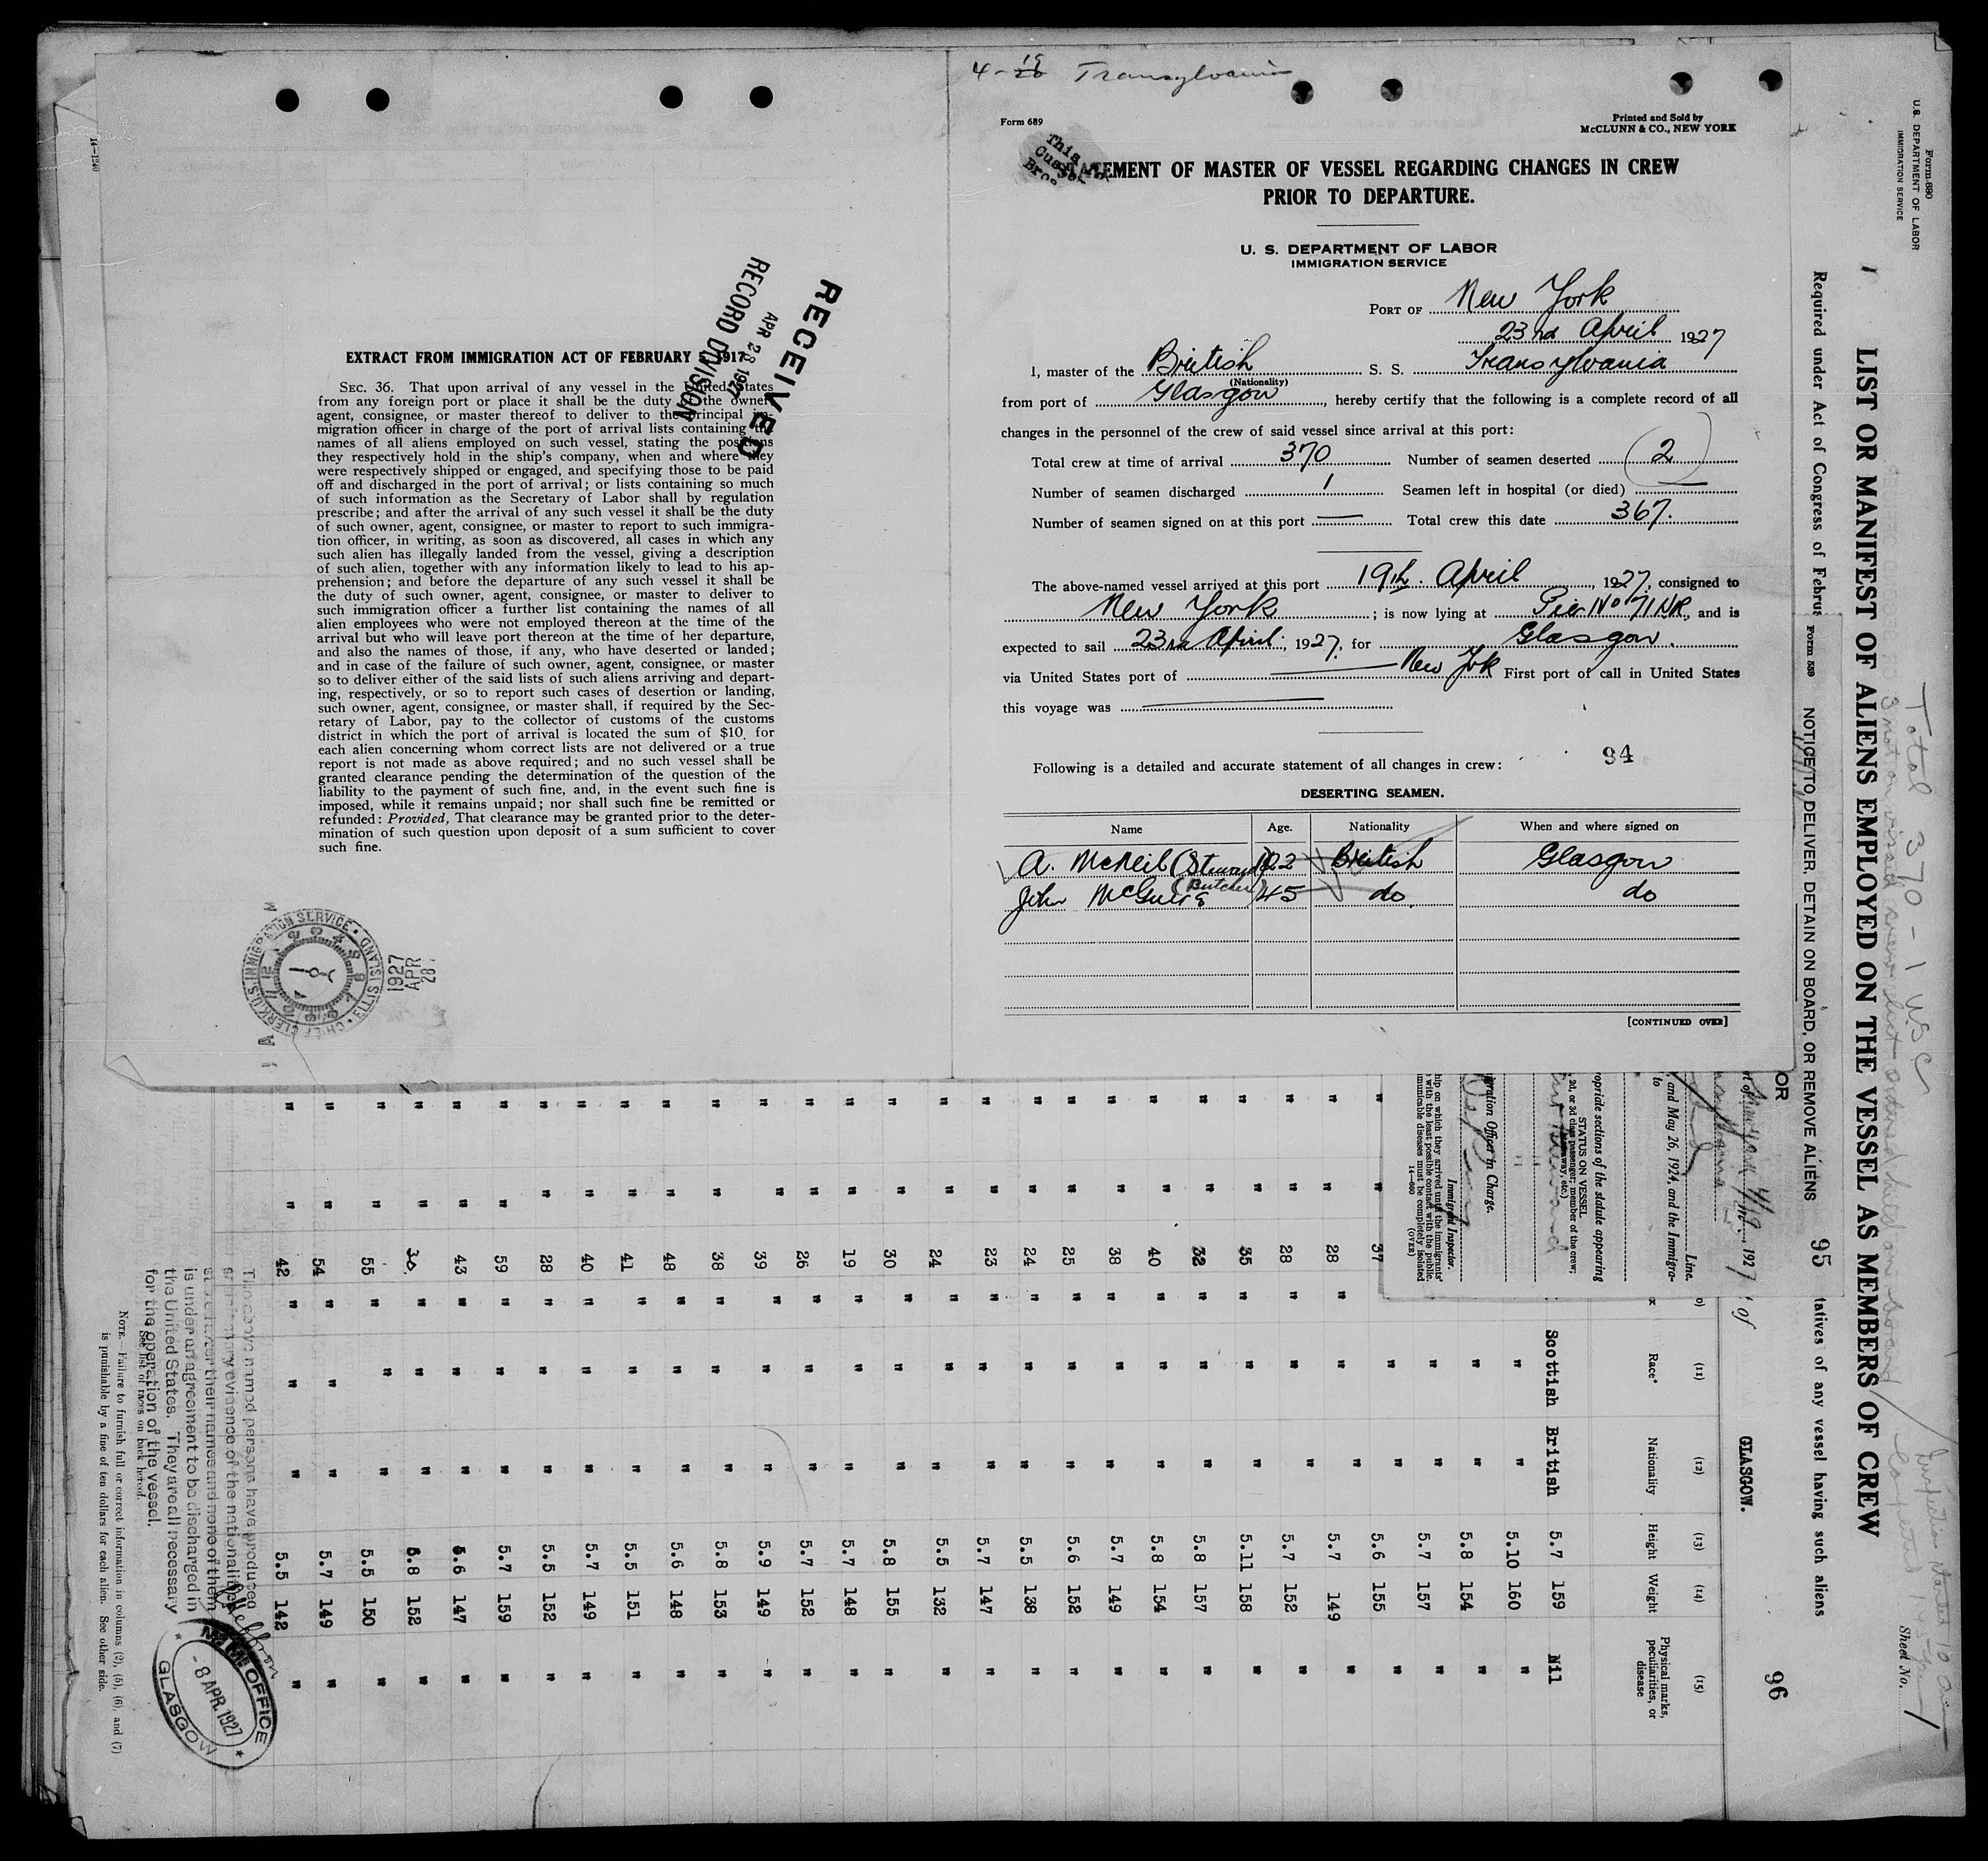 14-1240
EXTRACT FROM IMMIGRATION ACT OF FEBRUARY 5, 1917
SEC. 36. That upon arrival of any vessel in the United States
from any foreign port or place it shall be the duty of the owner,
agent, consignee, or master thereof to deliver to the principal im-
migration officer in charge of the port of arrival lists containing the
names of all aliens employed on such vessel, stating the positions
they respectively hold in the ship's company, when and where they
were respectively shipped or engaged, and specifying those to be paid
off and discharged in the port of arrival; or lists containing so much
of such information as the Secretary of Labor shall by regulation
prescribe; and after the arrival of any such vessel it shall be the duty
of such owner, agent, consignee, or master to report to such immigra-
tion officer, in writing, as soon as discovered, all cases in which any
such alien has illegally landed from the vessel, giving a description
of such alien, together with any information likely to lead to his ap-
prehension; and before the departure of any such vessel it shall be
the duty of such owner, agent, consignee, or master to deliver to
such immigration officer a further list containing the names of all
alien employees who were not employed thereon at the time of the
arrival but who will leave port thereon at the time of her departure,
and also the names of those, if any, who have deserted or landed;
and in case of the failure of such owner, agent, consignee, or master
so to deliver either of the said lists of such aliens arriving and depart-
ing, respectively, or so to report such cases of desertion or landing,
such owner, agent, consignee, or master shall, if required by the Sec-
retary of Labor, pay to the collector of customs of the customs
district in which the port of arrival is located the sum of $10 for
each alien concerning whom correct lists are not delivered or a true
report is not made as above required; and no such vessel shall be
granted clearance pending the determination of the question of the
liability to the payment of such fine, and, in the event such fine is
imposed, while it remains unpaid; nor shall such fine be remitted or
refunded: Provided, That clearance may be granted prior to the deter-
mination of such question upon deposit of a sum sufficient to cover
such fine.
RECEIVED
APR 28 1927
RECORD DIVISION
U.S. IMMIGRATION SERVICE • ELLIS ISLAND • CHIEF CLERK
1927
APR
28
4-19 Transylvania
Form 689
Printed and Sold by
McCLUNN & CO., NEW YORK
This
EMENT OF MASTER OF VESSEL REGARDING CHANGES IN CREW
PRIOR TO DEPARTURE.
U. S. DEPARTMENT OF LABOR
IMMIGRATION SERVICE
PORT OF New York
23rd April 1927
I, master of the British S. S. Transylvania
(Nationality)
from port of Glasgow, hereby certify that the following is a complete record of all
changes in the personnel of the crew of said vessel since arrival at this port:
Total crew at time of arrival 370 Number of seamen deserted (2)
Number of seamen discharged 1 Seamen left in hospital (or died) —
Number of seamen signed on at this port — Total crew this date 367.
The above-named vessel arrived at this port 19th. April, 1927, consigned to
New York; is now lying at Pier No 71 N.R., and is
expected to sail 23rd April, 1927, for Glasgow.
via United States port of — New York First port of call in United States
this voyage was —
94
Following is a detailed and accurate statement of all changes in crew:
DESERTING SEAMEN.
Name Age. Nationality When and where signed on
A. McNeil (Steward) 22 British Glasgow
John McGuire (Butcher) 45 do. do
[CONTINUED OVER]
Form 680
U. S. DEPARTMENT OF LABOR
IMMIGRATION SERVICE
Total 370 - 1 USC
LIST OR MANIFEST OF ALIENS EMPLOYED ON THE VESSEL AS MEMBERS OF CREW
Required under Act of Congress of Febru
tatives of any vessel having such aliens
Sheet No.
Form 559
NOTICE TO DELIVER, DETAIN ON BOARD, OR REMOVE ALIENS
95
OR
192
Line.
, and May 26, 1924, and the Immigra-
to
ropride sections of the statute appearing
STATUS ON VESSEL
2d, or 3d class passenger; member of the crew;
way, etc.)
gration Officer in Charge.
Immigrant Inspector.
hip on which they arrived until the immigrants'
with the least possible contact with the public.
municable diseases must be completely isolated
14-660 (OVER)
of
GLASGOW.
96
(11) (12) (13) (14) (15)
Race* Nationality Height Weight Physical marks, peculiarities, or disease
Scottish British 5.7 159 Nil
" " 5.10 160 "
" " 5.8 154 "
" " 5.7 157 "
37 " " 5.6 155 "
28 " " " 5.7 149 "
28 " " " 5.7 152 "
35 " " " 5.11 158 "
32 " " " 5.8 157 "
40 " " " 5.8 154 "
38 " " " 5.7 149 "
25 " " " 5.6 152 "
24 " " " 5.5 138 "
23 " " " 5.7 147 "
24 " " " 5.5 132 "
30 " " " 5.8 155 "
19 " " " 5.7 148 "
26 " " " 5.7 152 "
39 " " " 5.9 149 "
38 " " " 5.8 153 "
48 " " " 5.6 148 "
41 " " " 5.5 151 "
40 " " " 5.7 149 "
28 " " " 5.5 152 "
59 " " " 5.7 159 "
43 " " " 5.6 147 "
30 " " " 5.8 152 "
55 " " " 5.5 150 "
54 " " " 5.7 149 "
42 " " " 5.5 142 "
The above named persons have produced
evidence of the nationalities
their names and none of them
is under an agreement to be discharged in
the United States. They are all necessary
for the operation of the vessel.
See list of races on back hereof.
NOTE.—Failure to furnish full or correct information in columns (2), (5), (6), and (7)
is punishable by a fine of ten dollars for each alien. See other side.
M.M. OFFICE
- 8 APR. 1927
GLASGOW